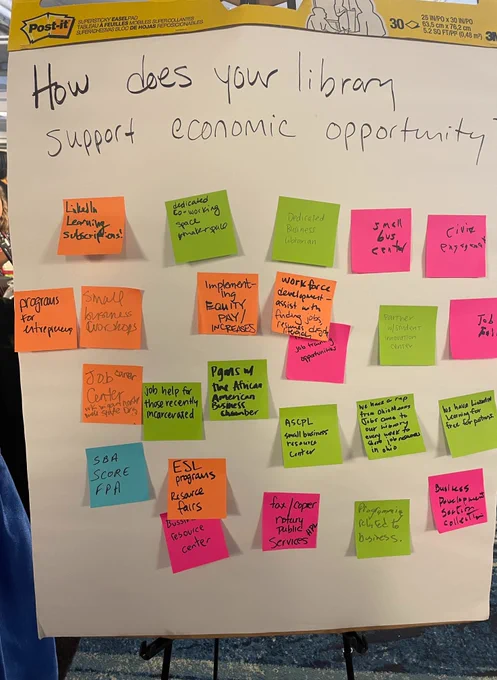 Post-it
SUPERSTICKY EASEL PAD
TABLEAU À FEUILLES MOBILES SUPERCOLLANTES
30
25 IN/PO x 30 IN/PO
63,5 cm x 76,2 cm
5.2 SQ FT/PP (0,48 m²)
3M
How does your library
support economic opportunity
LinkedIn
Learning
Subscriptions!
dedicated
co-working
space
makerspace
Dedicated
Business
Librarian
small
bus
center
Civic
programs
for
entrepreneurs
Small
business
workshops
Implement-
ing
EQUITY
PAY/
INCREASES
workforce
development -
assist with
finding jobs
job training
opportunities
Job
Job career
Center
job help for
those recently
incarcerated
Pgms w/
the African
American
Business
Chamber
ASCPL
small business
resource
center
We have a rep
from OhioMeans
Jobs come to
our library
every week to
in Ohio
We have LinkedIn
Learning for
free for patrons
SBA
SCORE
FPA
ESL
programs
Resource
fairs
resource
center
fax/copier
notary
public
Services
Programming
related to
business.
Business
Development
collection